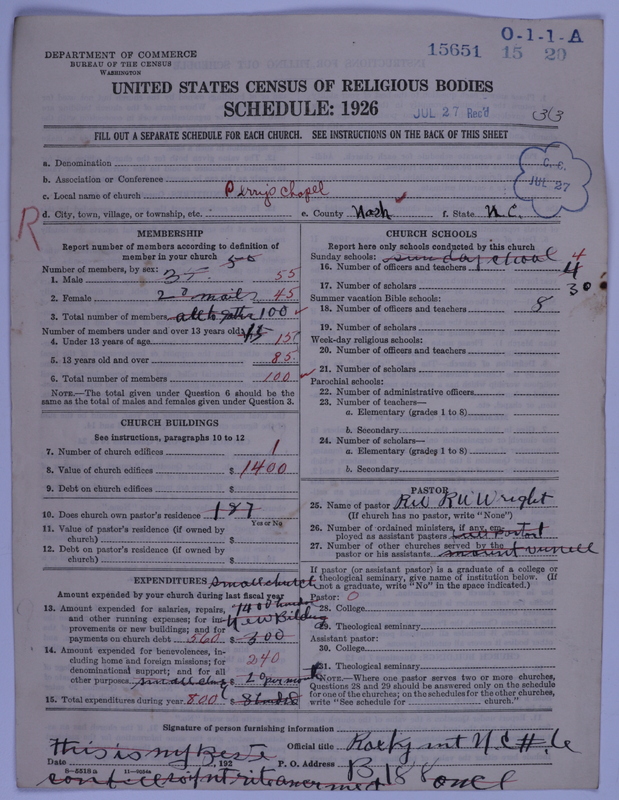 O-1-1-A
15651 15 20
DEPARTMENT OF COMMERCE
BUREAU OF THE CENSUS
WASHINGTON
UNITED STATES CENSUS OF RELIGIOUS BODIES
SCHEDULE: 1926
JUL 27 Rec'd
FILL OUT A SEPARATE SCHEDULE FOR EACH CHURCH. SEE INSTRUCTIONS ON THE BACK OF THIS SHEET
a. Denomination
b. Association or Conference
JUL 27
c. Local name of church Perrys chapel
d. City, town, village, or township, etc. e. County Nash f. State N.C.
R
MEMBERSHIP
Report number of members according to definition of member in your church
Number of members, by sex:
1. Male 55
2. Female 45
3. Total number of members 100
Number of members under and over 13 years old:
4. Under 13 years of age 15
5. 13 years old and over 85
6. Total number of members 100
NOTE.—The total given under Question 6 should be
same as the total of males and females given under Question 3.
CHURCH BUILDINGS
See instructions, paragraphs 10 to 12
7. Number of church edifices 1
8. Value of church edifices $ 1400
9. Debt on church edifices $
10. Does church own pastor's residence
Yes or No
11. Value of pastor's residence (if owned by
church) $
12. Debt on pastor's residence (if owned by
church) $
EXPENDITURES small church
Amount expended by your church during last fiscal year
13. Amount expended for salaries, repairs,
and other running expenses; for im-
provements or new buildings; and for
payments on church debt 560 $ 300
14. Amount expended for benevolences, in-
cluding home and foreign missions; for
denominational support; and for all
other purposes 240
15. Total expenditures during year 800 $
CHURCH SCHOOLS
Report here only schools conducted by this church
Sunday schools: sunday school 4
16. Number of officers and teachers 4
17. Number of scholars 30
Summer vacation Bible schools:
18. Number of officers and teachers 8
19. Number of scholars
Week-day religious schools:
20. Number of officers and teachers
21. Number of scholars
Parochial schools:
22. Number of administrative officers
23. Number of teachers—
a. Elementary (grades 1 to 8)
b. Secondary
24. Number of scholars—
a. Elementary (grades 1 to 8)
b. Secondary
PASTOR
25. Name of pastor RW RW Wright
(If church has no pastor, write "None")
26. Number of ordained ministers, if any, em-
ployed as assistant pastors
27. Number of other churches served by the
pastor or his assistants
If pastor (or assistant pastor) is a graduate of a college or
theological seminary, give name of institution below. (If
not a graduate, write "No" in the space indicated.)
Pastor: 0
28. College
29. Theological seminary
Assistant pastor:
30. College
31. Theological seminary
NOTE.—Where one pastor serves two or more churches,
Questions 28 and 29 should be answered only on the schedule
for one of the churches; on the schedules for the other churches,
write "See schedule for church."
Signature of person furnishing information
this is my Official title Rocky mt N.C.
Date , 192 P. O. Address B 188
8-5518a 11-9064a